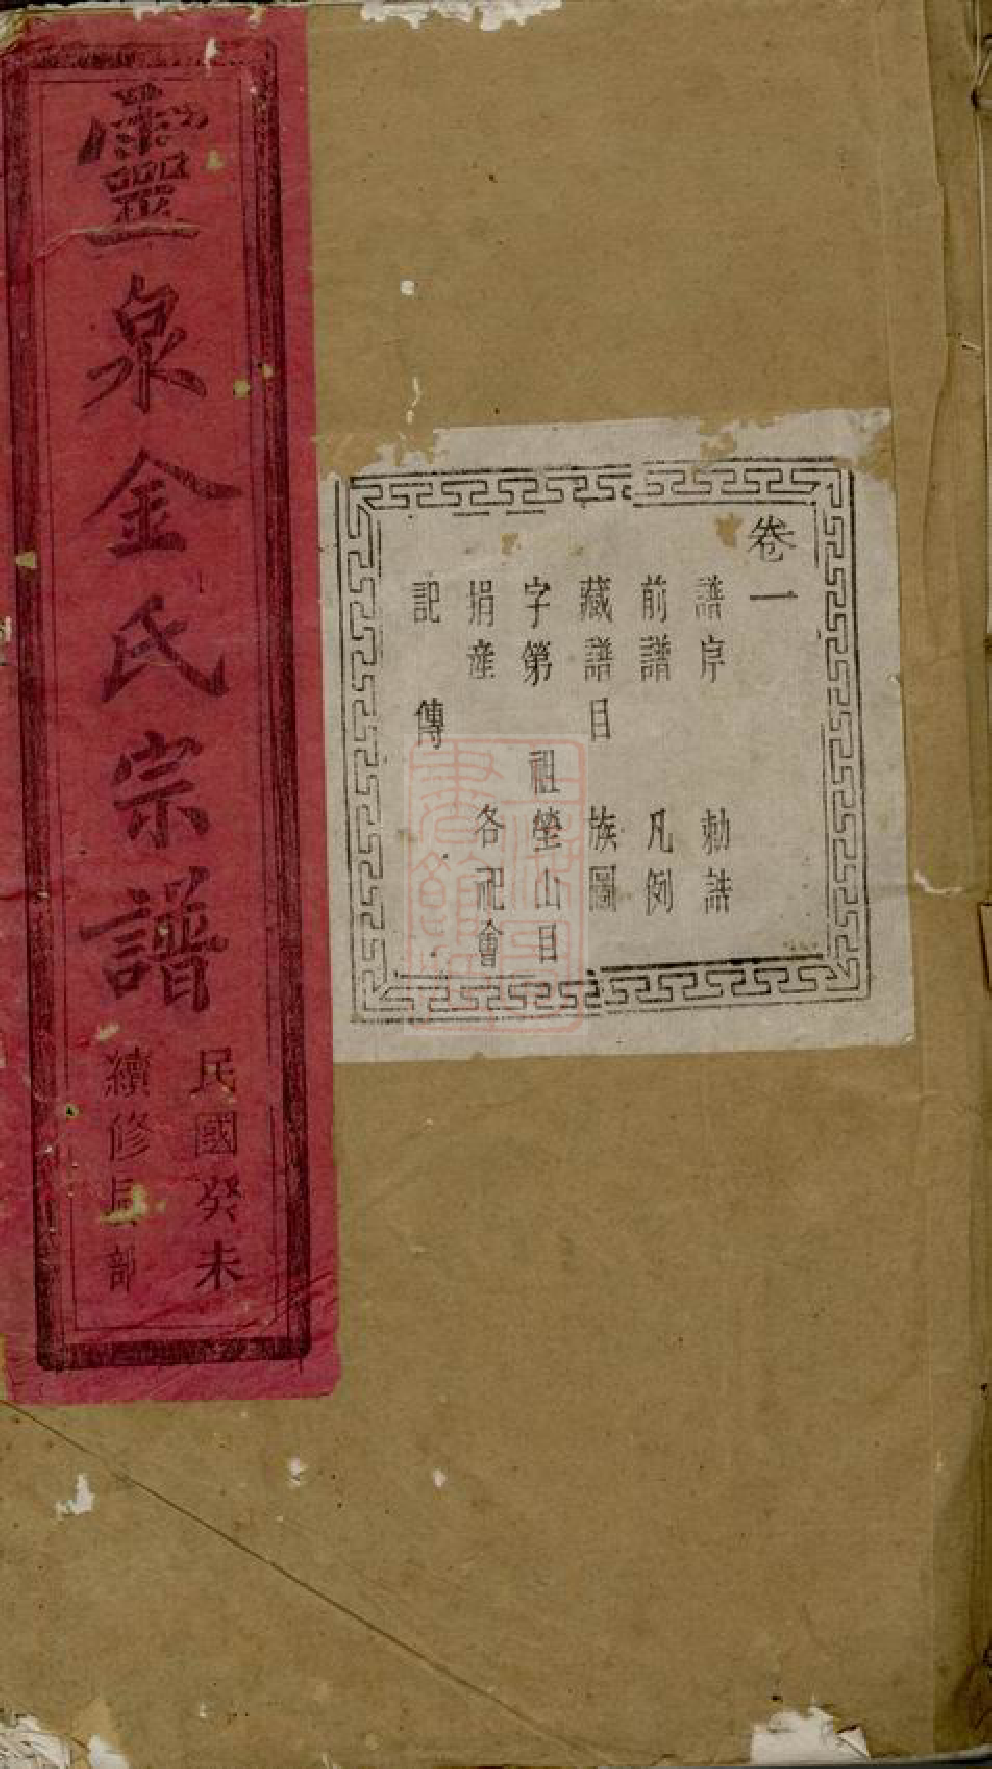 卷一
譜序 勅誥
前譜 凡例
藏譜目 族圖
字第 祖塋山目
捐產 各祀會
記傳
靈泉金氏宗譜
民國癸未
續修 部